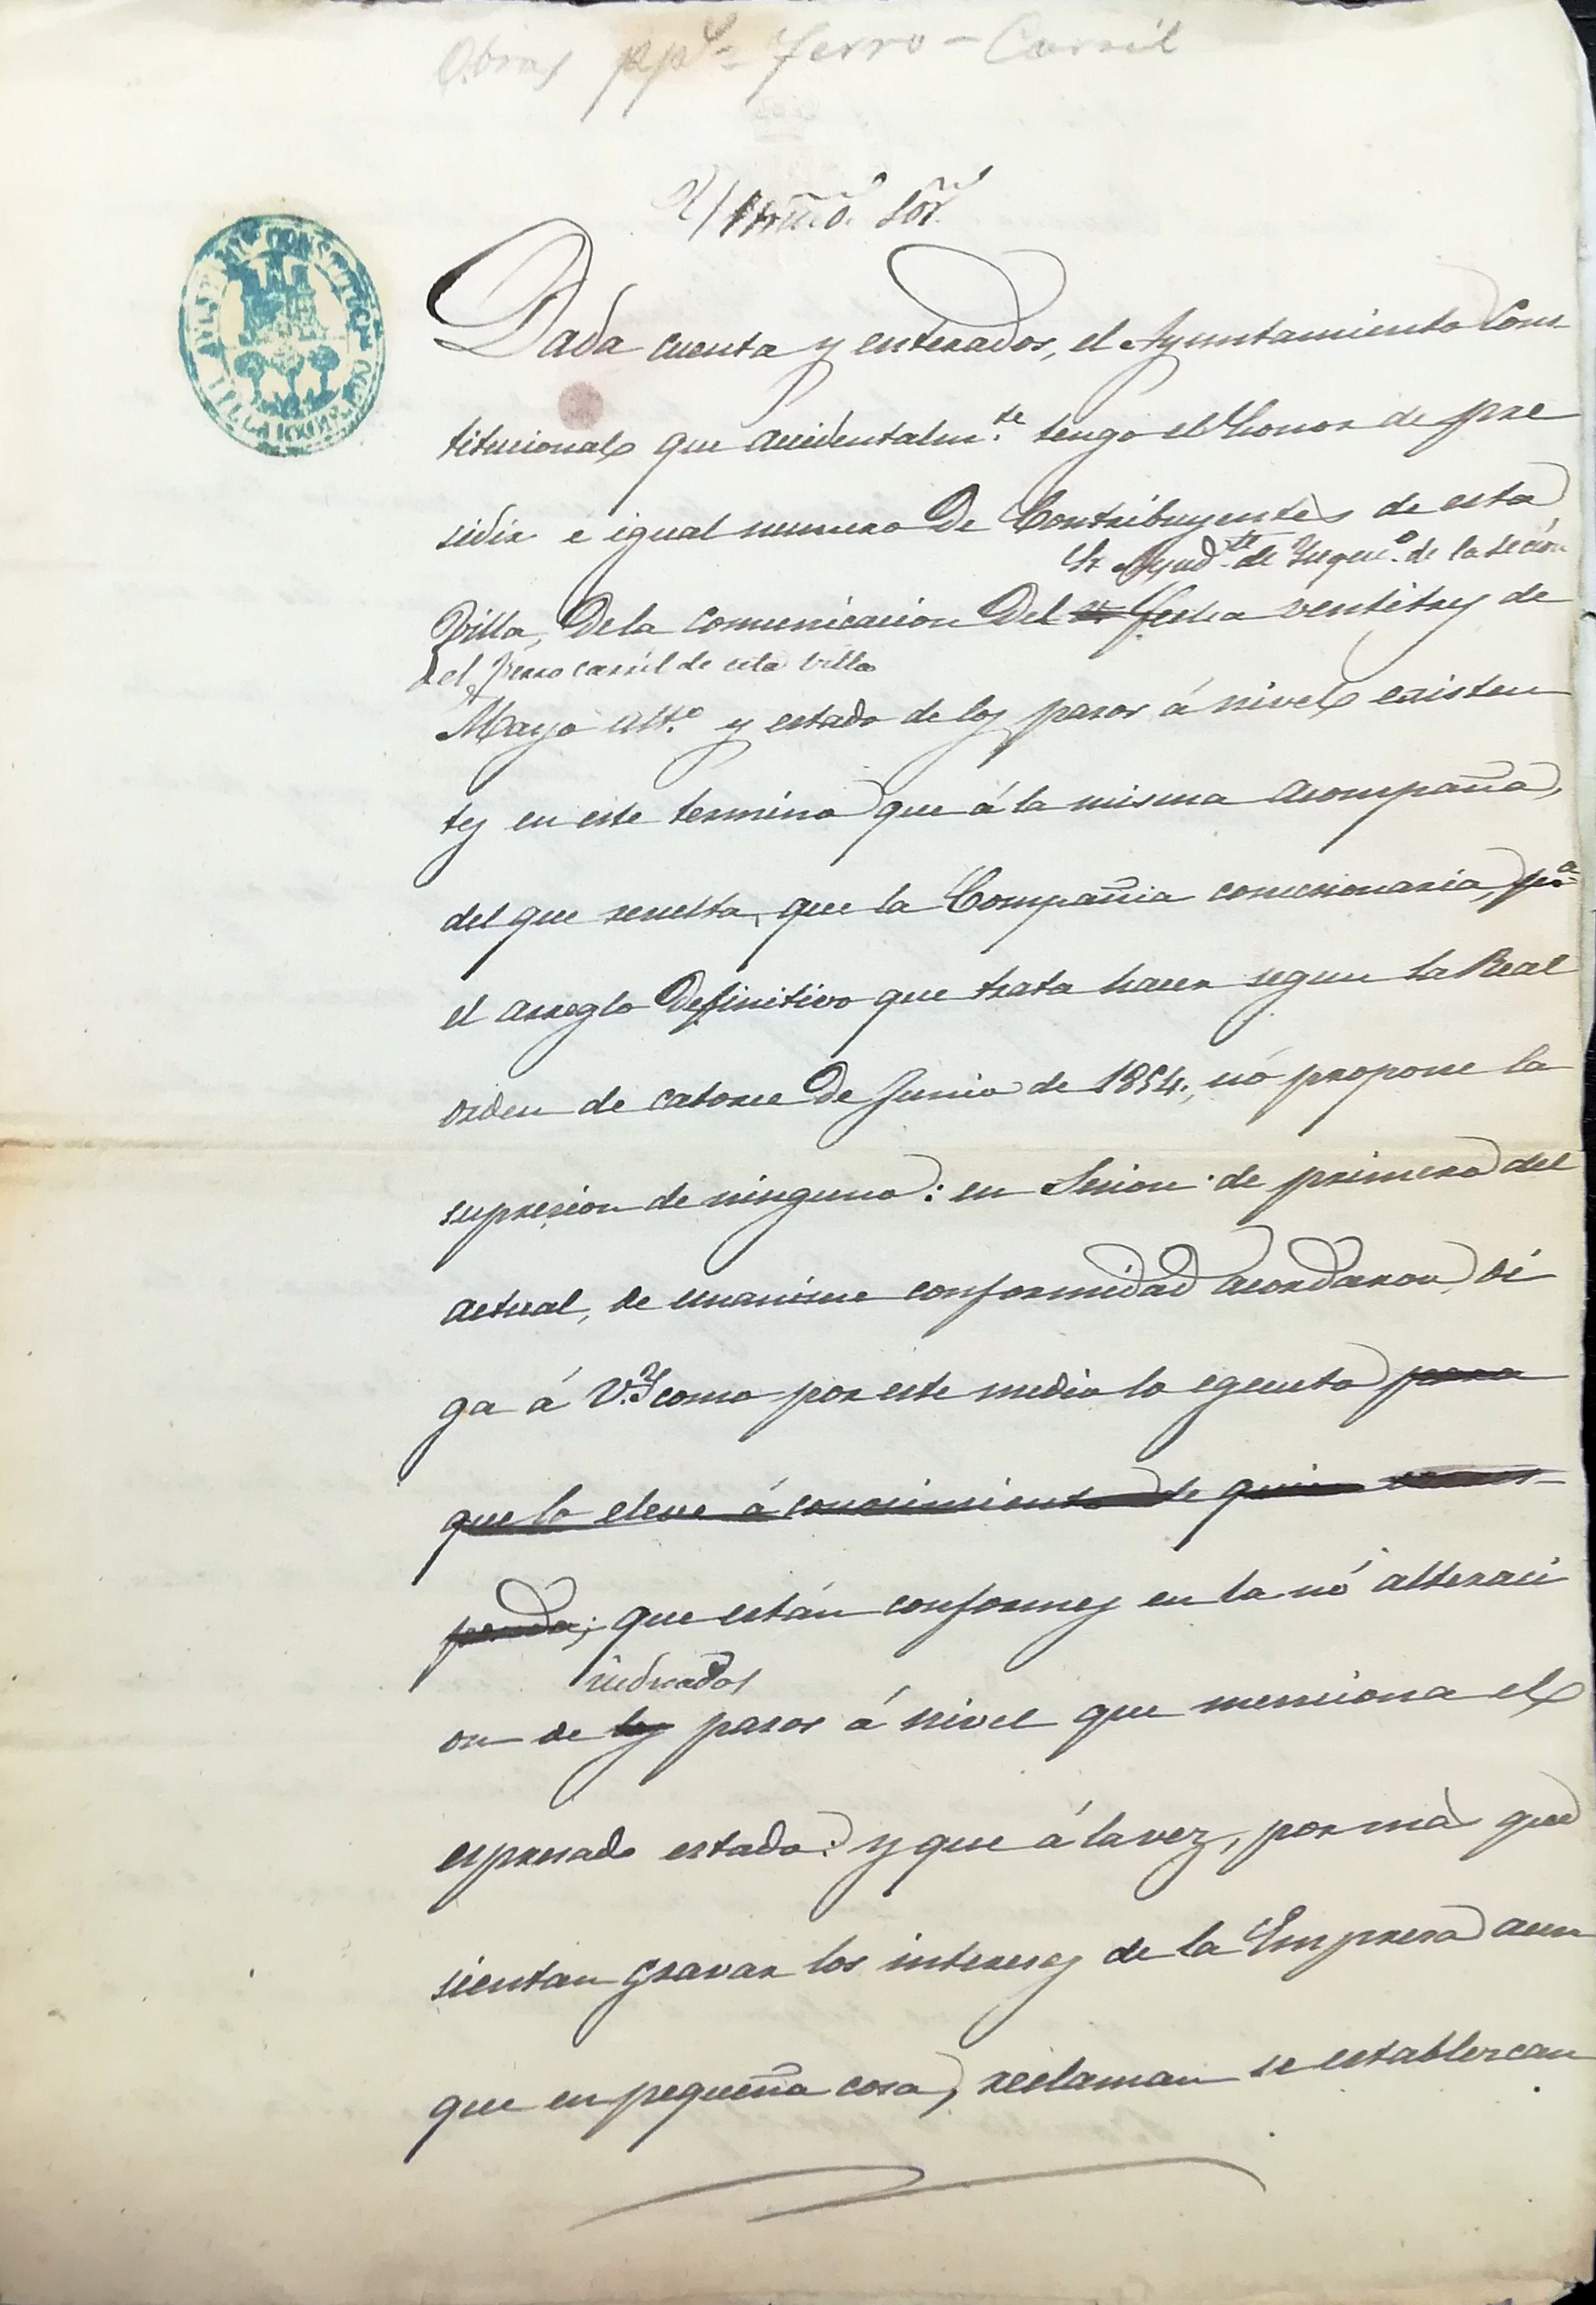 Obras pp.s = Ferro-Carril
Yltmo. Sor.
Dada cuenta y enterados, el Ayuntamiento Cons
titucional que accidentalm.te tengo el honor de pre
sidir e igual numero de Contribuyentes de esta
Sr. Ayud.te de Ingen.o de la seccion
Villa, de la comunicacion del fecha ventitres de
del ferro carril de esta Villa
Mayo ult.o y estado de los pasos á nivel existen
tes en este termino que á la misma acompaña,
del que resulta, que la Compañia concesionaria, p.a
el arreglo definitivo que trata hacer segun la Real
orden de catorce de Junio de 1854, nó propone la
supresion de ninguno: en Sesion de primero del
actual, de unanime conformidad acordaron, di
ga á V.Y. como por este medio lo egecuto para
que lo eleve á conocimiento de quien corres-
ponda; que están conformes en la nó alteraci
indicados
on de los pasos á nivel que menciona el
espresado estado: y que á la vez, por mas que
sientan gravar los intereses de la Empresa aun
que en pequeña cosa, reclaman se establezcan